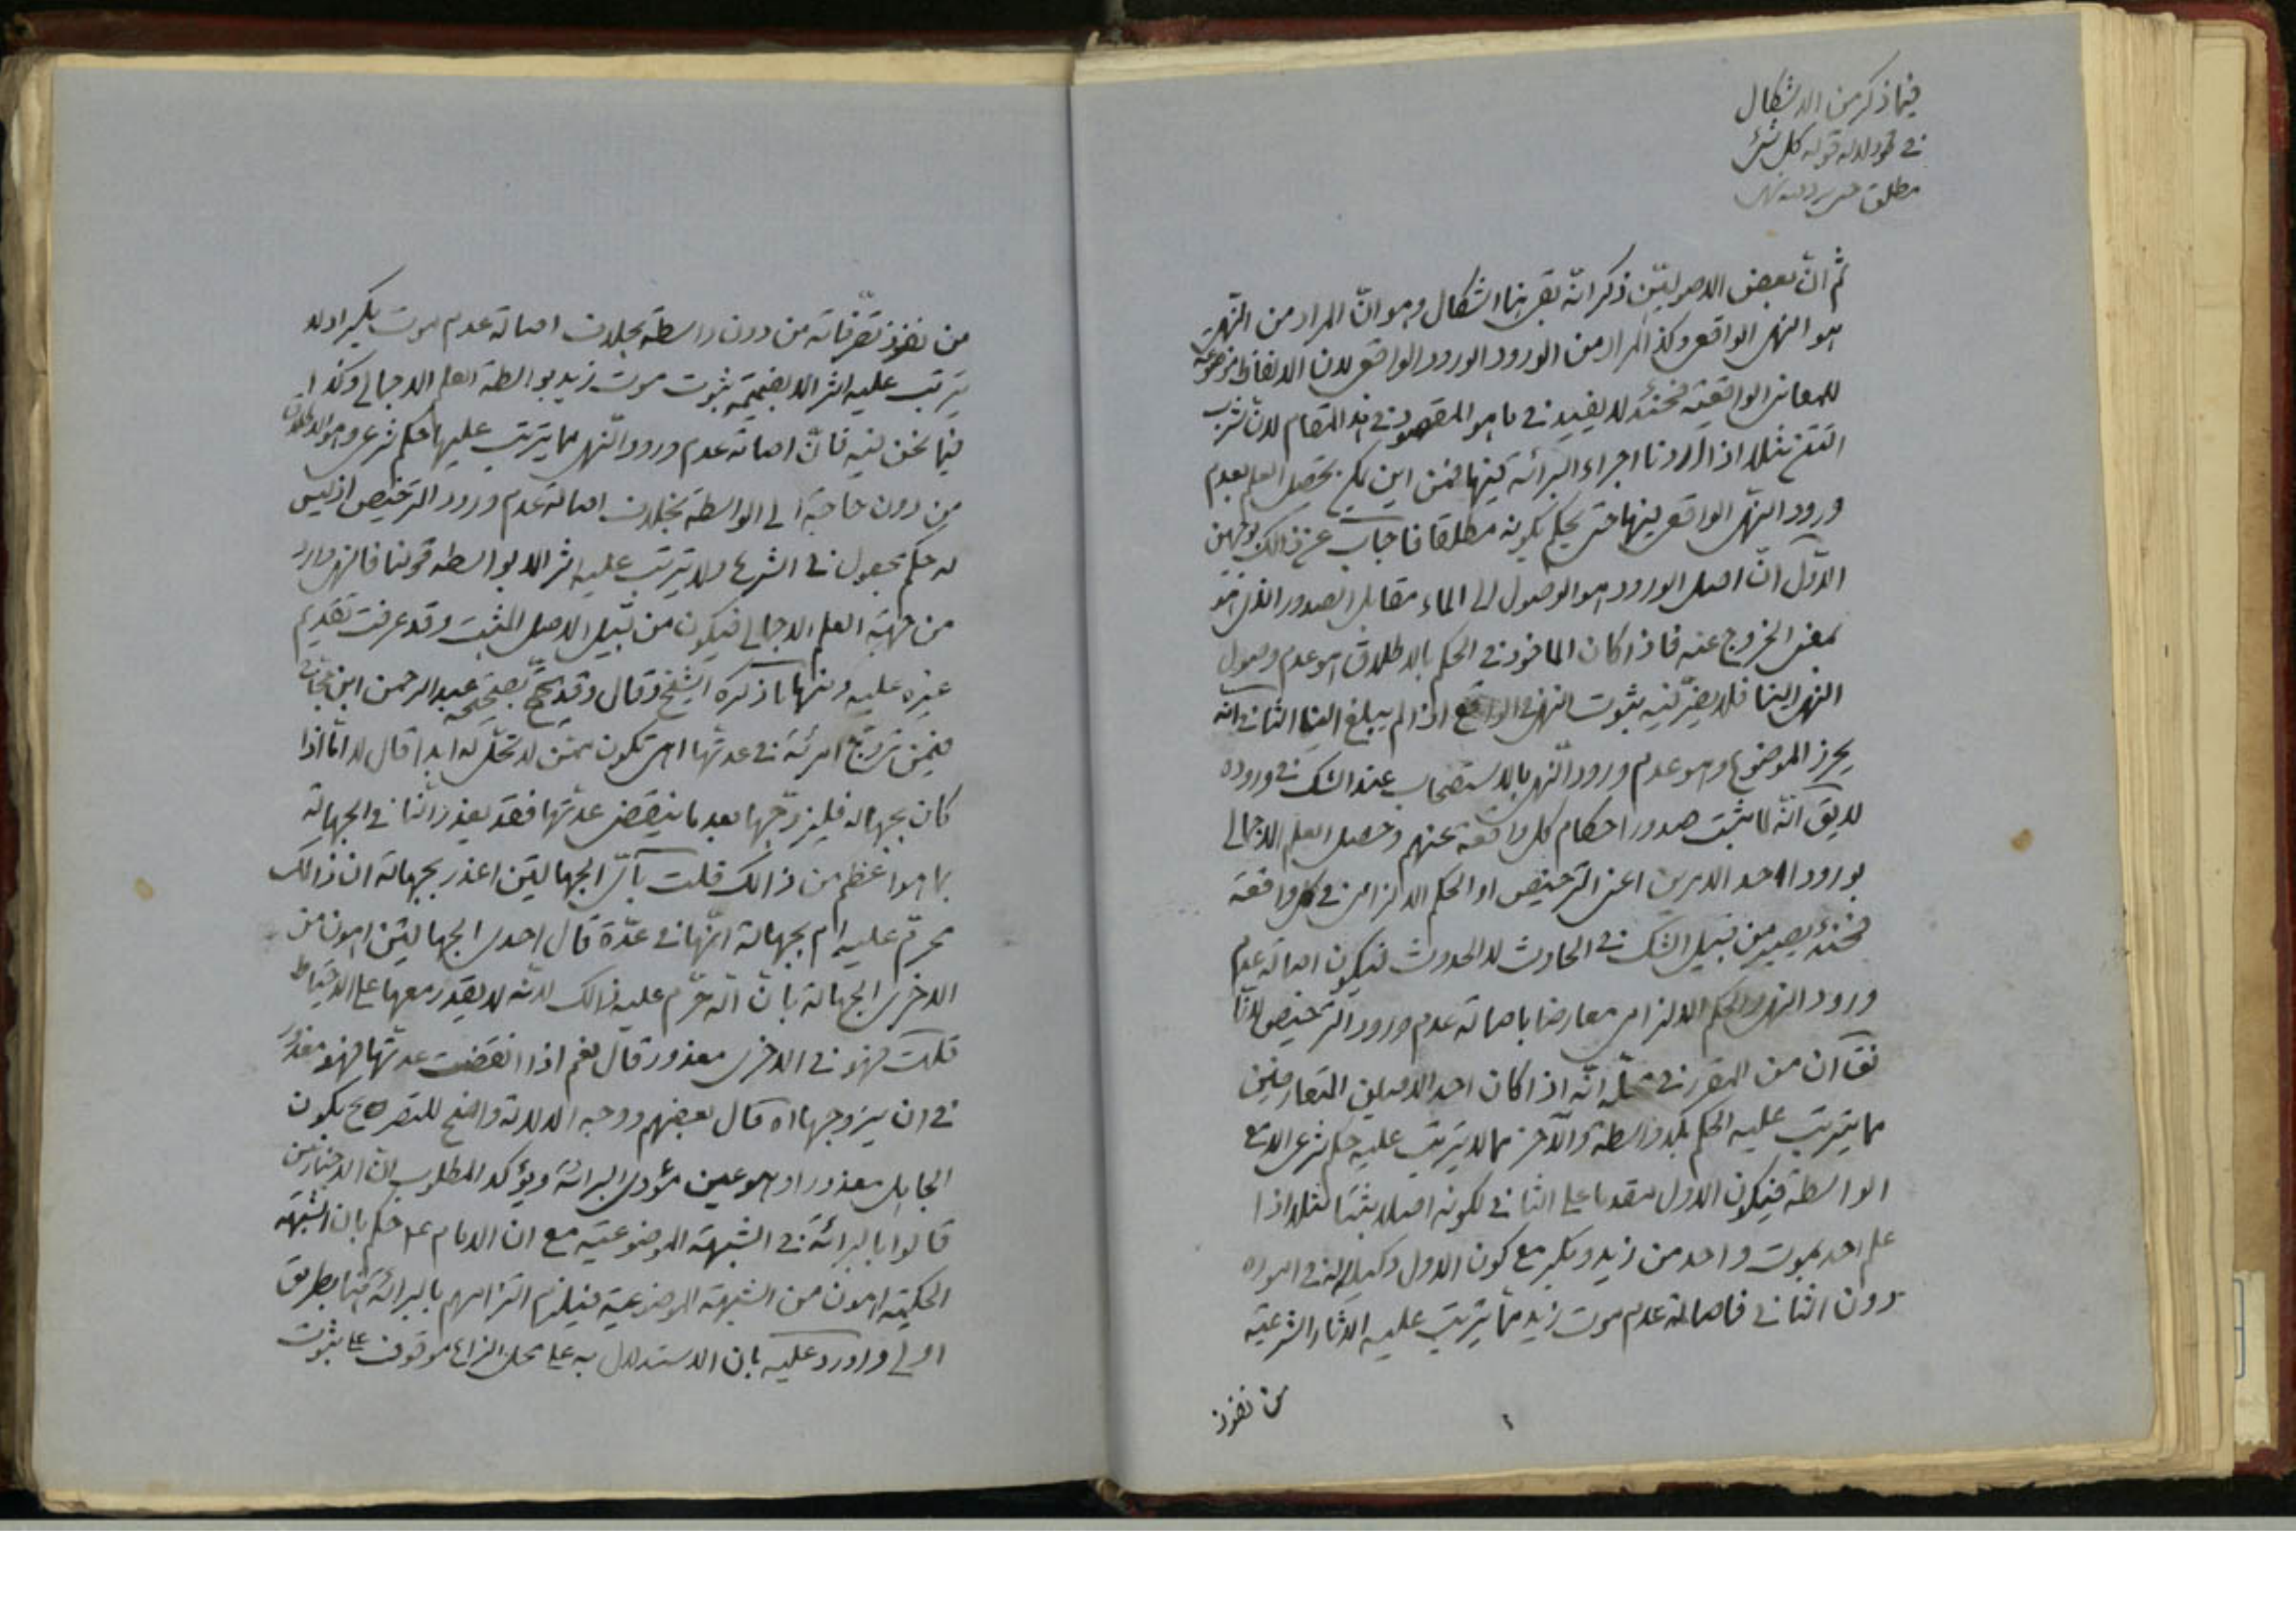 فيما ذكر من الاشكال
في دلالة قوله كل شئ
مطلق حتى يرد فيه نهى
ثم انّ بعض الاصوليّين ذكر انّه بقى هنا اشكال وهو انّ المراد من النّهى
هو النهى الواقعى وكذا المراد من الورود الورود الواقعى لان الالفاظ موضوعة
للمعانى الواقعيّة فحينئذ لا يفيد فى ما هو المقصود فى هذا المقام لانّ شرب
التتن مثلا اذا اردنا اجراء البرائة فيها فمن اين يحصل العلم بعدم
ورود النّهى الواقعى فيها حتى يحكم بكونه مطلقا فاجاب عن ذالك بوجهين
الاوّل انّ اصل الورود هو الوصول الى الماء مقابل الصدور الذى هو
بمعنى الخروج عنه فاذا كان الماخوذ فى الحكم بالاطلاق هو عدم وصول
النهى الينا فلا يضرّ فيه ثبوت النهى فى الواقع اذا لم يبلغ الينا الثانى انّه
يحرز الموضوع وهو عدم ورود النّهى بالاستصحاب عند الشك فى وروده
لا يق انّه لما ثبت صدور احكام كل واقعة عنهم وحصل العلم الاجمالى
بورود احد الامرين اعنى الترخيص او الحكم الالزامى فى كل واقعة
فحينئذ يصير من قبيل الشك فى الحادث لا الحدوث فيكون اصالة عدم
ورود النهى والحكم الالزامى معارضا باصالة عدم ورود الترخيص لانّا
نق انّ من المقرر فى محلّه انّه اذا كان احد الاصلين المتعارضين
مما يترتب عليه الحكم بلا واسطة والآخر مما لا يترتب عليه حكم شرعى الا مع
الواسطة فيكون الاول مقدما على الثانى لكونه اصلا مثبتا مثلا اذا
علم احد بموت واحد من زيد وبكر مع كون الاول وكيلا له فى اموره
دون الثانى فاصالة عدم موت زيد ممّا يترتب عليه الاثار الشرعيّة
من نفوذ
من نفوذ تصرّفاته من دون واسطة بخلاف اصالة عدم موت بكر اذ لا
يترتب عليه اثر الا بضميمة ثبوت موت زيد بواسطة العلم الاجمالى وكذا
فيما نحن فيه فانّ اصالة عدم ورود النّهى مما يترتب عليها حكم شرعى وهو الاطلاق
من دون حاجة الى الواسطة بخلاف اصالة عدم ورود الترخيص اذ ليس
له حكم مجعول فى الشرع ولا يترتب عليه اثر الا بواسطة قولنا فالنهى وارد
من جهة العلم الاجمالى فيكون من قبيل الاصل المثبت وقد عرفت تقديم
غيره عليه ومنها ما ذكره الشيخ وقال وقد يحتجّ بصحيحة عبد الرحمن ابن حجّاج
فيمن تزوّج امرئة فى عدتها اهى تكون ممّن لا تحلّ له ابدا قال لا امّا اذا
كان بجهالة فليزوّجها بعد ما ينقضى عدّتها فقد يعذر النّاس فى الجهالة
بما هو اعظم من ذالك قلت بأىّ الجهالتين اعذر بجهالة ان ذالك
محرّم عليه ام بجهالة انّها فى عدّة قال احدى الجهالتين اهون من
الاخرى الجهالة بانّ الله حرّم عليه ذالك لانّه لا يقدر معها على الاحتياط
قلت فهو فى الاخرى معذور قال نعم اذا انقضت عدّتها فهو معذور
فى ان يزوجها اه قال بعضهم ووجه الدلالة واضح للتصريح بكون
الجاهل معذورا وهو عين مؤدى البرائة ويؤكد المطلوب انّ الاخباريّين
قالوا بالبرائة فى الشبهة الموضوعيّة مع ان الامام ع حكم بان الشبهة
الحكميّة اهون من الشبهة الموضوعية فيلزم التزامهم بالبرائة فيها بطريق
اولى واورد عليه بان الاستدلال به على محل النزاع موقوف على ثبوت